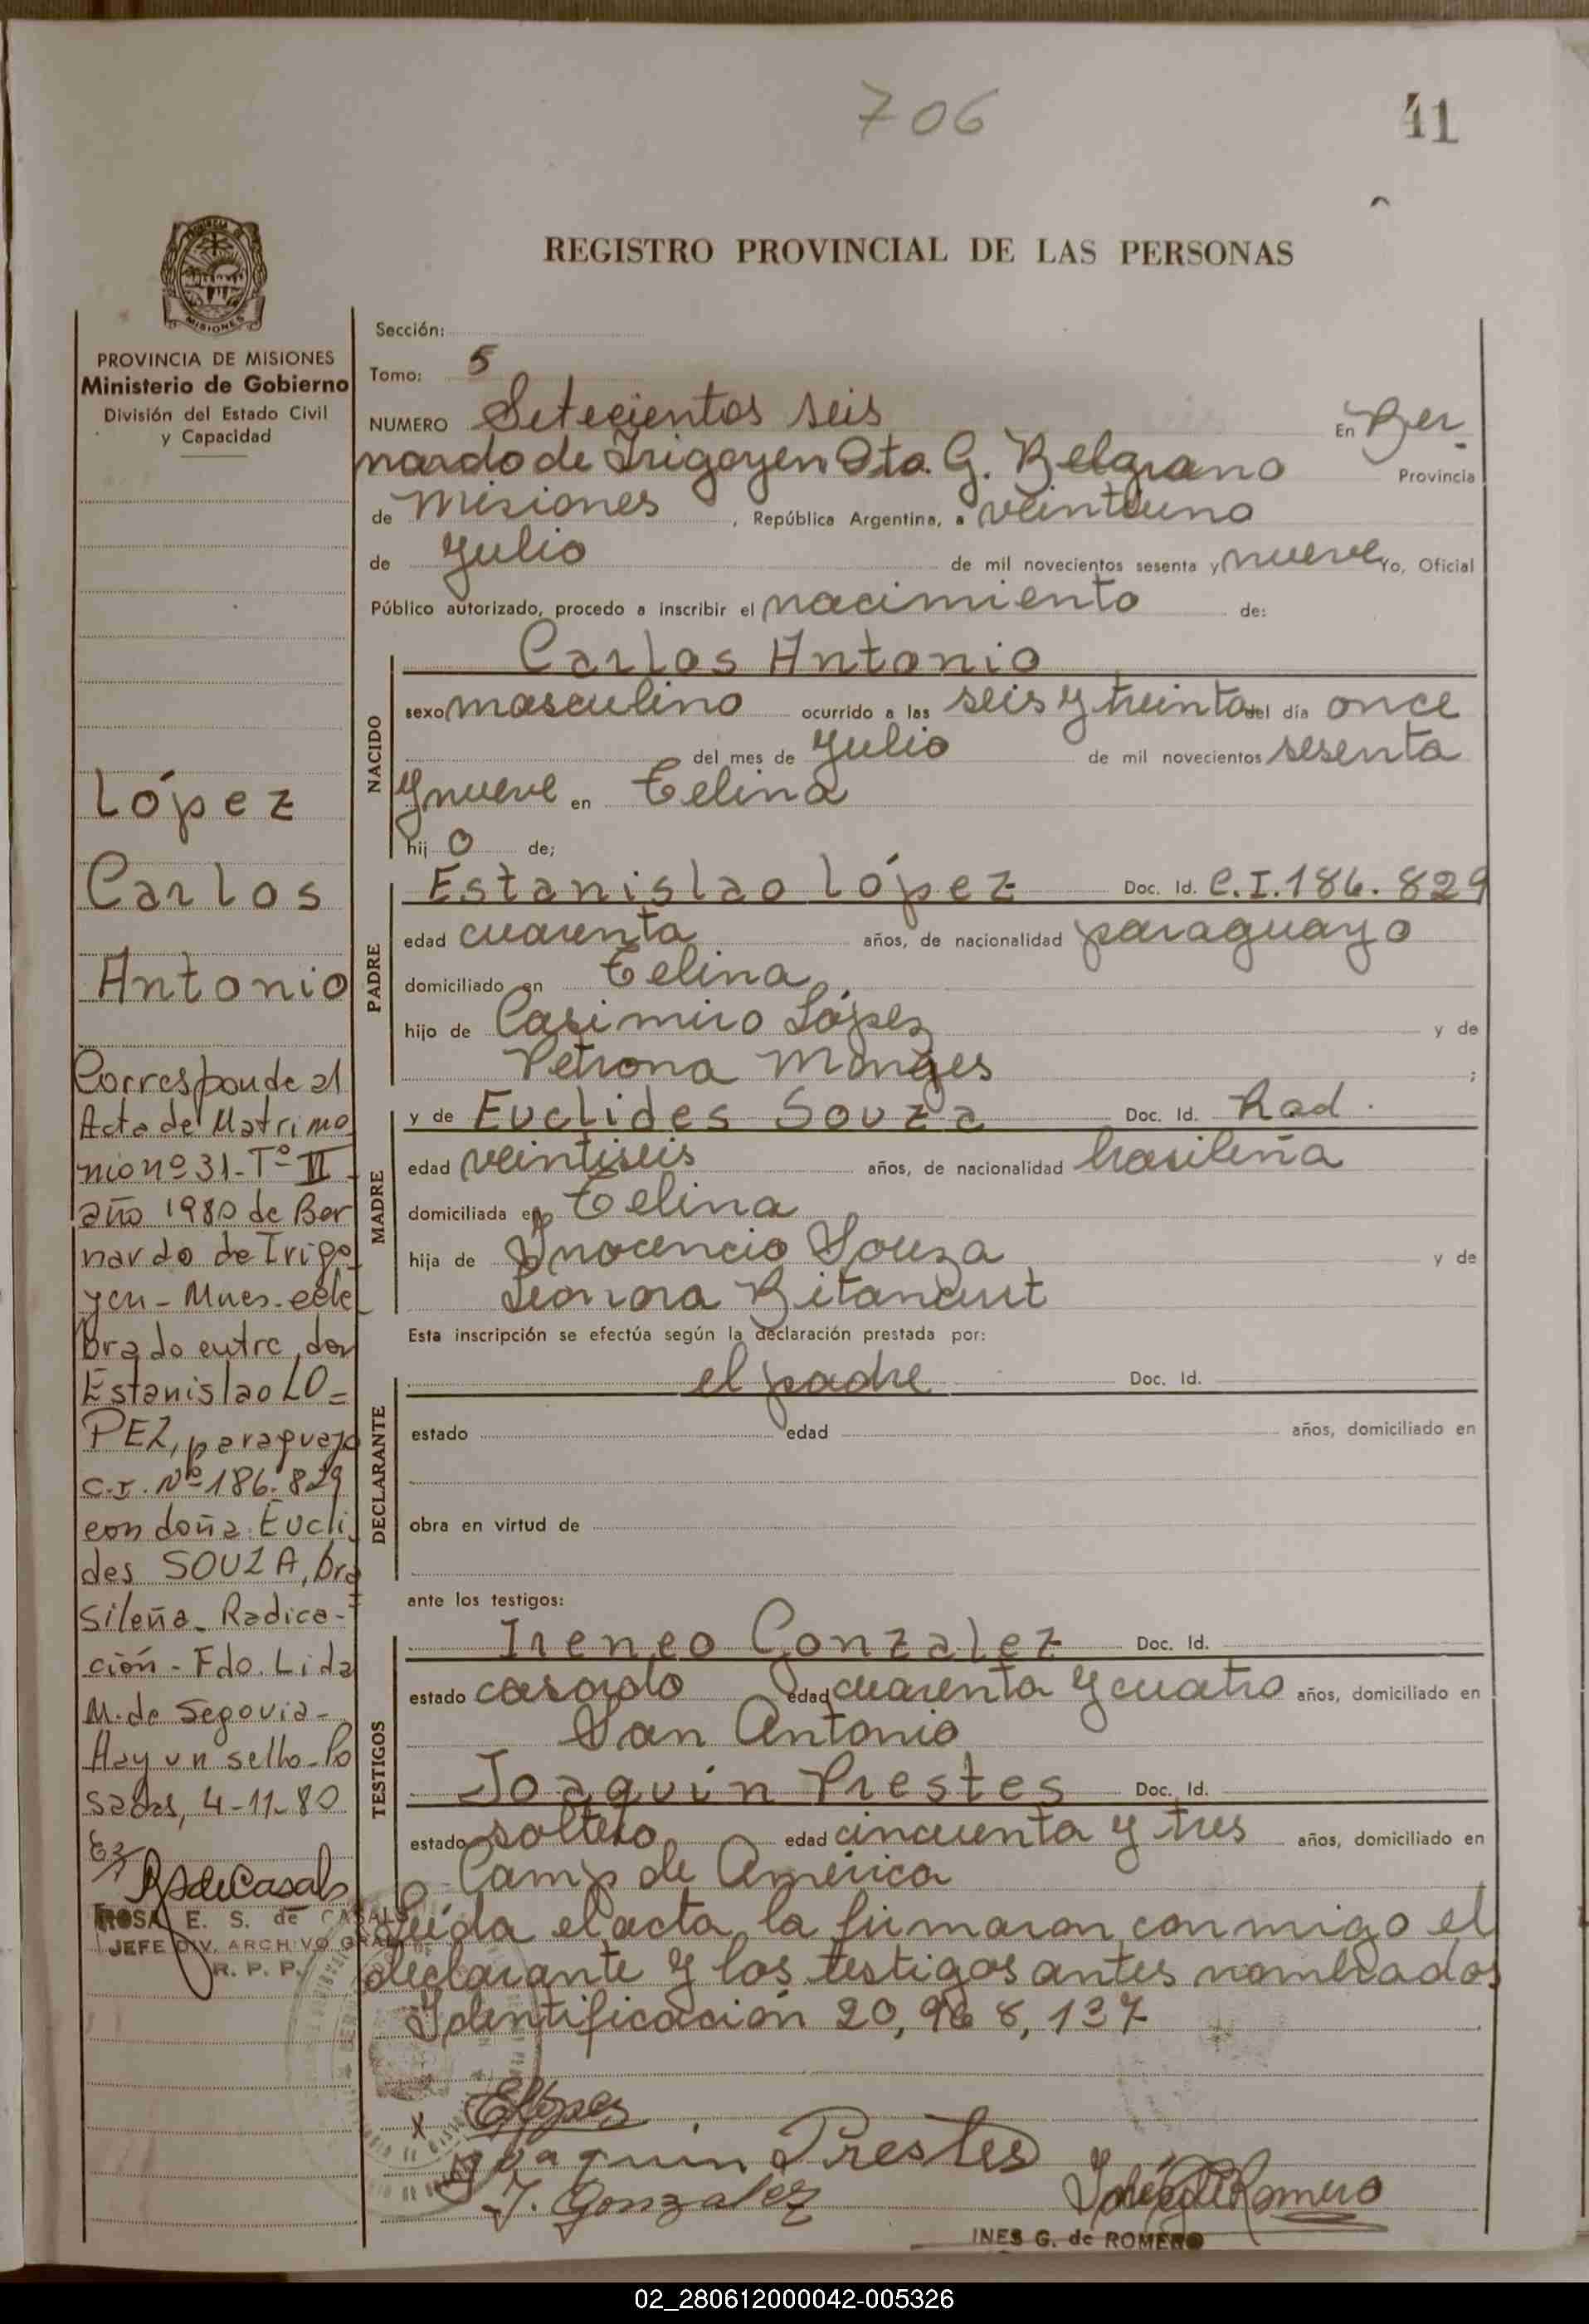 706
41
REGISTRO PROVINCIAL DE LAS PERSONAS
MISIONES
PROVINCIA DE MISIONES
Ministerio de Gobierno
División del Estado Civil
y Capacidad
López
Carlos
Antonio
Corresponde al
Acta de Matrimo
nio nº 31 - Tº II -
año 1980 de Ber
nardo de Irigo
yen - Mnes - cele
brado entre don
Estanislao LO=
PEZ, paraguayo
C.I. Nº 186.829
con doña Eucli
des SOUZA, bra
sileña - Radica-
ción - Fdo. Lida
M. de Segovia -
Hay un sello - Po
sadas, 4-11-80
RSdeCasals
ROSA E. S. de CASALS
JEFE DIV. ARCHIVO GRAL
R. P. P.
Sección:
Tomo: 5
NUMERO Setecientos seis En Ber-
nardo de Irigoyen Dto. G. Belgrano Provincia
de Misiones, República Argentina, a veintiuno
de Julio de mil novecientos sesenta y nueve Yo, Oficial
Público autorizado, procedo a inscribir el nacimiento de:
NACIDO
Carlos Antonio
sexo masculino ocurrido a las seis y treinta del día once
del mes de Julio de mil novecientos sesenta
y nueve en Celina
hij o de;
PADRE
Estanislao López Doc. Id. C.I. 186.829
edad cuarenta años, de nacionalidad paraguayo
domiciliado en Celina
hijo de Casimiro López y de
Petrona Monges ;
MADRE
y de Euclides Souza Doc. Id. Rad.
edad veintiseis años, de nacionalidad brasileña
domiciliada en Celina
hija de Inocencio Souza y de
Leonora Bitancurt
Esta inscripción se efectúa según la declaración prestada por:
DECLARANTE
el padre Doc. Id.
estado edad años, domiciliado en
obra en virtud de
ante los testigos:
TESTIGOS
Ireneo Gonzalez Doc. Id.
estado casado edad cuarenta y cuatro años, domiciliado en
San Antonio
Joaquin Prestes Doc. Id.
estado soltero edad cincuenta y tres años, domiciliado en
Camp de América
Leída el acta la firmaron conmigo el
declarante y los testigos antes nombrados
Identificación 20,968,137
x ELópez
Joaquin Prestes
I. Gonzalez
Inés G de Romero
INES G. de ROMERO
02_280612000042-005326